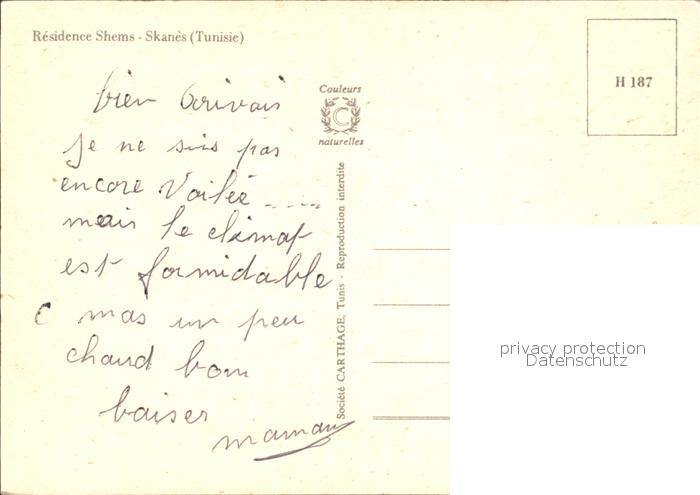 Résidence Shems - Skanès (Tunisie)
H 187
Couleurs
C
naturelles
Société CARTHAGE, Tunis - Reproduction interdite
bien
je ne suis pas
encore Voilée .....
mais le climat
est formidable
mas un peu
chaud bom
baiser
maman
privacy protection
Datenschutz